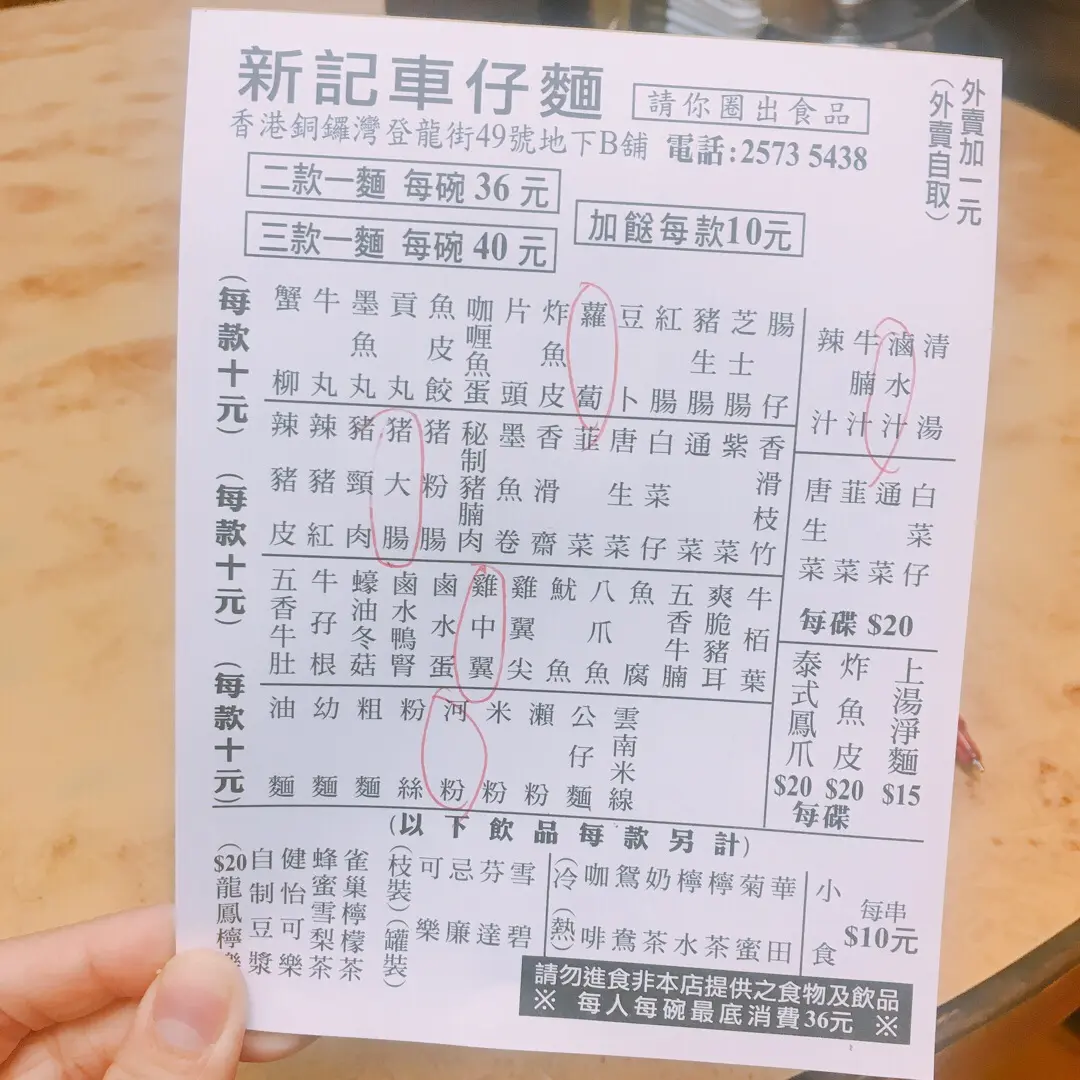 新記車仔麵
請你圈出食品
香港銅鑼灣登龍街49號地下B舖 電話:2573 5438
外賣加一元
（外賣自取）
二款一麵 每碗36元
三款一麵 每碗40元
加餸每款10元
（每款十元）
蟹柳
牛丸
墨魚丸
貢丸
魚皮餃
咖喱魚蛋
片頭
炸魚皮
蘿蔔
豆卜
紅腸
豬生腸
芝士腸
腸仔
（每款十元）
辣豬皮
辣豬紅
豬頸肉
猪大腸
猪粉腸
秘制豬腩肉
墨魚卷
香滑齋
韮菜
唐生菜
白菜仔
通菜
紫菜
香滑枝竹
（每款十元）
五香牛肚
牛孖根
蠔油冬菇
鹵水鴨腎
鹵水蛋
雞中翼
雞翼尖
魷魚
八爪魚
魚腐
五香牛腩
爽脆豬耳
牛栢葉
油麵
幼麵
粗麵
粉絲
河粉
米粉
瀨粉
公仔麵
雲南米線
辣汁
牛腩汁
滷水汁
清湯
唐生菜
韮菜
通菜
白菜仔
每碟 $20
泰式鳳爪 $20
炸魚皮 $20
每碟
上湯淨麵 $15
（以下飲品每款另計）
$20
龍鳳檸樂
自制豆漿
健怡可樂
蜂蜜雪梨茶
雀巢檸檬茶
（枝裝）（罐裝）
可樂
忌廉
芬達
雪碧
（冷）（熱）
咖啡
鴛鴦
奶茶
檸水
檸茶
菊蜜
華田
小食
每串
$10元
請勿進食非本店提供之食物及飲品
※ 每人每碗最底消費36元 ※